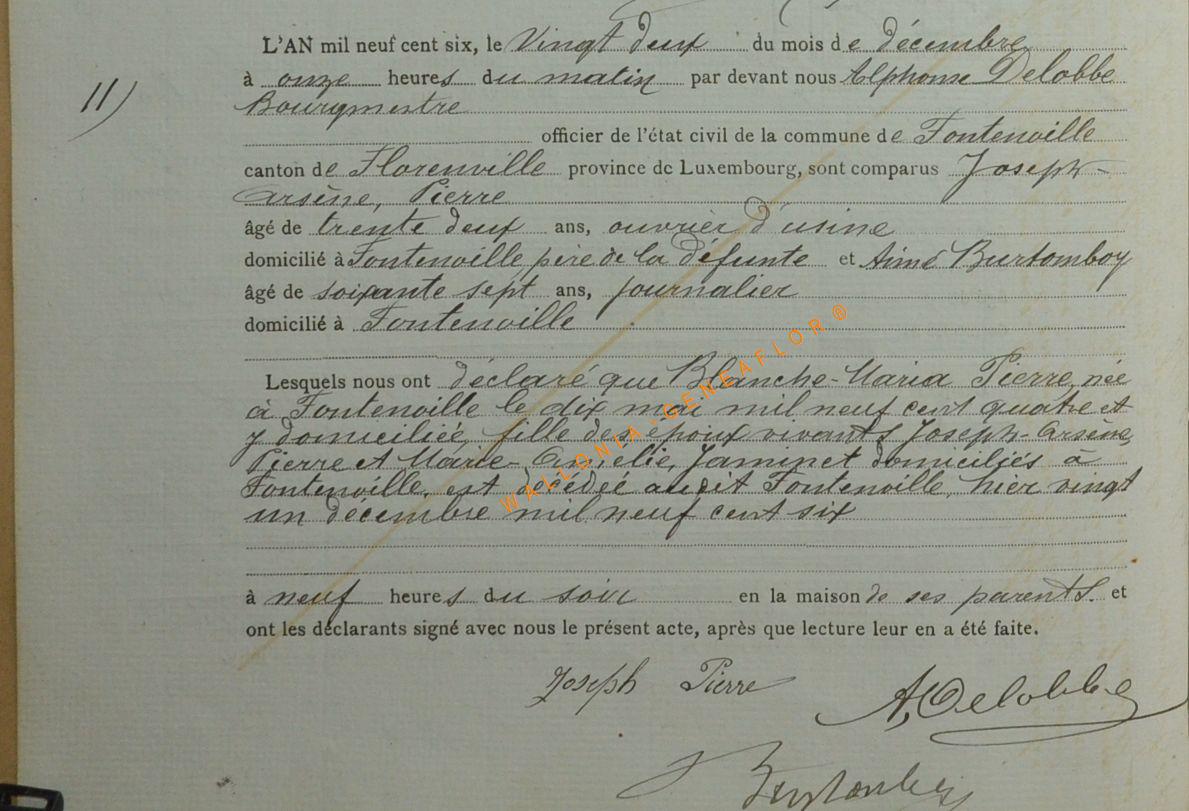 L'AN mil neuf cent six, le Vingt deux du mois de décembre
11) à onze heures du matin par devant nous Alphonse Delobbe
Bourgmestre
officier de l'état civil de la commune de Fontenoille
canton de Florenville province de Luxembourg, sont comparus Joseph-
Arsène, Pierre
âgé de trente deux ans, ouvrier d'usine
domicilié à Fontenoille père de la défunte et Aimé Burtomboy
âgé de soixante sept ans, journalier
domicilié à Fontenoille
Lesquels nous ont déclaré que Blanche-Maria Pierre, née
à Fontenoille le dix mai mil neuf cent quatre et
y domiciliée, fille des époux vivants Joseph-Arsène,
Pierre et Marie-Amélie, Jaminet domiciliés à
Fontenoille, est décédée audit Fontenoille, hier vingt
un décembre mil neuf cent six
à neuf heures du soir en la maison de ses parents. et
ont les déclarants signé avec nous le présent acte, après que lecture leur en a été faite.
Joseph Pierre A, Delobbe
Burtomboy
WALLONIA-GENEAFLOR®